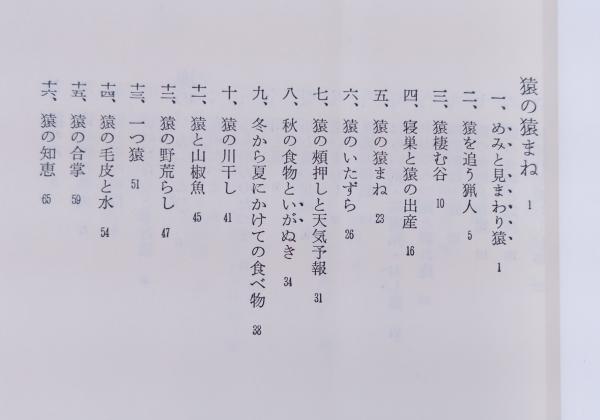 猿の猿まね 1
一、めみと見まわり猿 1
二、猿を追う猟人 5
三、猿棲む谷 10
四、寝巣と猿の出産 16
五、猿の猿まね 23
六、猿のいたずら 26
七、猿の頰押しと天気予報 31
八、秋の食物といがぬき 34
九、冬から夏にかけての食べ物 38
十、猿の川干し 41
十一、猿と山椒魚 45
十二、猿の野荒らし 47
十三、一つ猿 51
十四、猿の毛皮と水 54
十五、猿の合掌 59
十六、猿の知恵 65